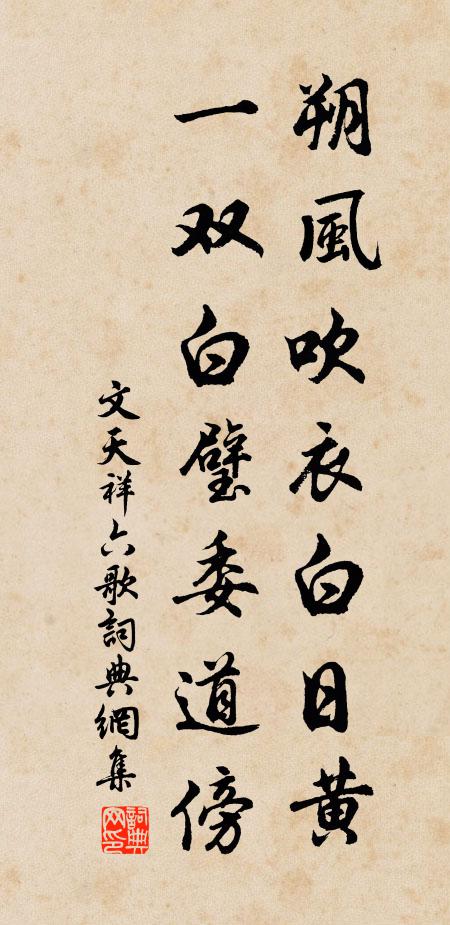 朔風吹衣白日黃
一双白璧委道傍
文天祥六歌詞典網集
詞典网印